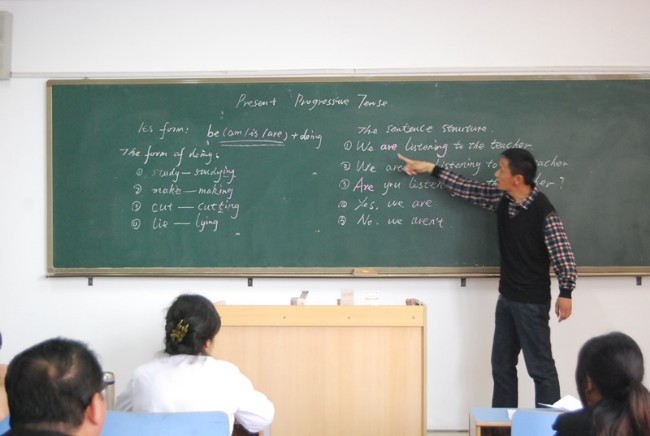 Present Progressive Tense.
Its form: be (am/is/are) + doing
The form of doing:
① study — studying
② make — making
③ cut — cutting
④ lie — lying
The sentence structure.
① We are listening to the teacher
② We are listening to teacher
③ Are you listen ?
④ Yes, we are
⑤ No. we aren't